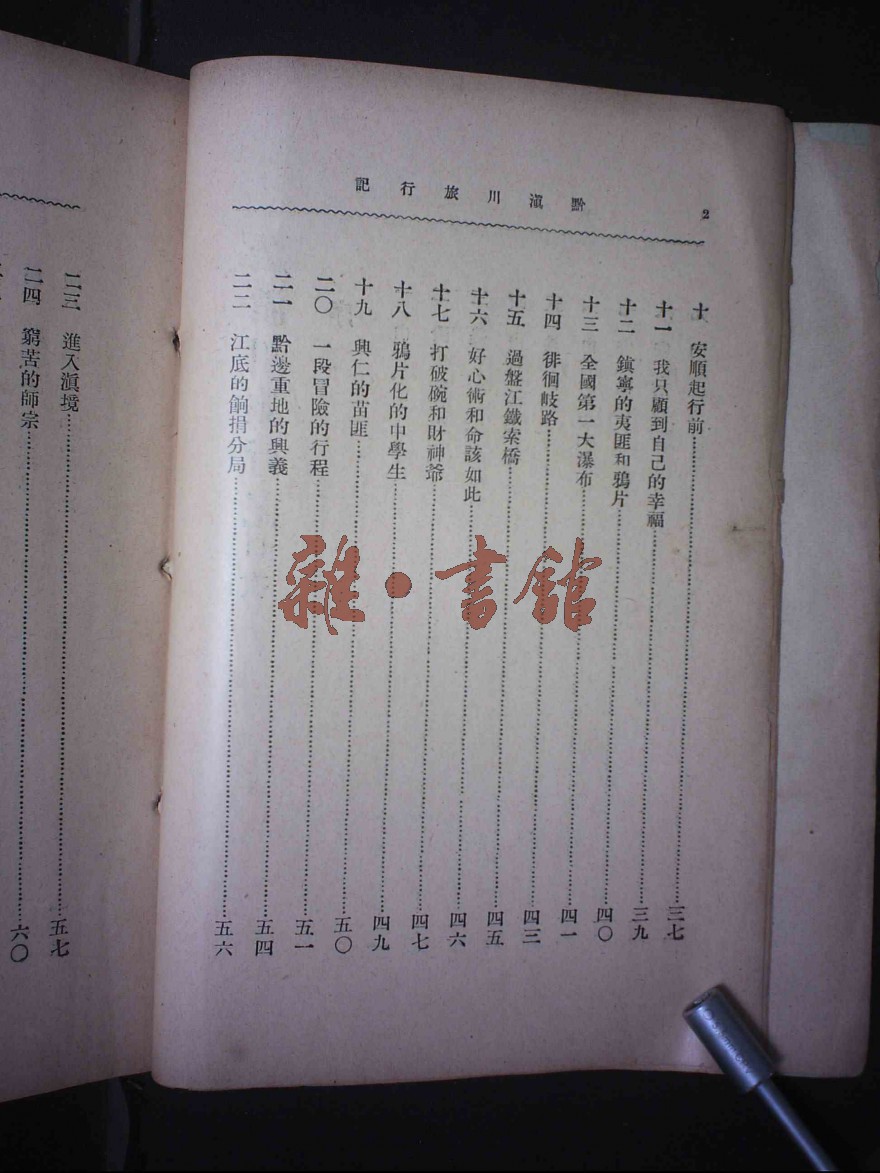 2
黔滇川旅行記
十 安順起行前……三七
十一 我只顧到自己的幸福……三九
十二 鎮寧的夷匪和鴉片……四〇
十三 全國第一大瀑布……四一
十四 徘徊歧路……四三
十五 過盤江鐵索橋……四五
十六 好心術和命該如此……四六
十七 打破碗和財神爺……四七
十八 鴉片化的中學生……四九
十九 興仁的苗匪……五〇
二〇 一段冒險的行程……五一
二一 黔邊重地的興義……五四
二二 江底的餉捐分局……五六
二三 進入滇境……五七
二四 窮苦的師宗……六〇
雜·書館